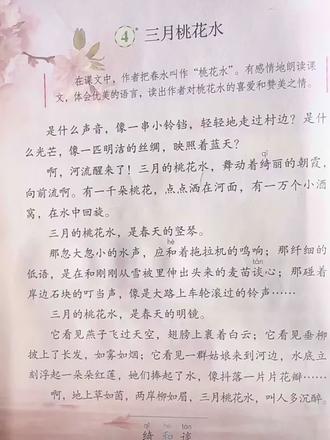 4 三月桃花水
在课文中，作者把春水叫作“桃花水”。有感情地朗读课
文，体会优美的语言，读出作者对桃花水的喜爱和赞美之情。
是什么声音，像一串小铃铛，轻轻地走过村边？是什
么光芒，像一匹明洁的丝绸，映照着蓝天？
qǐ
啊，河流醒来了！三月的桃花水，舞动着绮丽的朝霞，
向前流啊。有一千朵桃花，点点洒在河面，有一万个小酒
窝，在水中回旋。
三月的桃花水，是春天的竖琴。
hè
那忽大忽小的水声，应和着拖拉机的鸣响；那纤细的
tán
低语，是在和刚刚从雪被里伸出头来的麦苗谈心；那碰着
岸边石块的叮当声，像是大路上车轮滚过的铃声……
三月的桃花水，是春天的明镜。
它看见燕子飞过天空，翅膀上裹着白云；它看见垂柳
披上了长发，如雾如烟；它看见一群姑娘来到河边，水底立
刻浮起一朵朵红莲，她们捧起了水，像抖落一片片花瓣……
啊，地上草如茵，两岸柳如眉，三月桃花水，叫人多沉醉。
qǐ hè tán
绮 和 谈